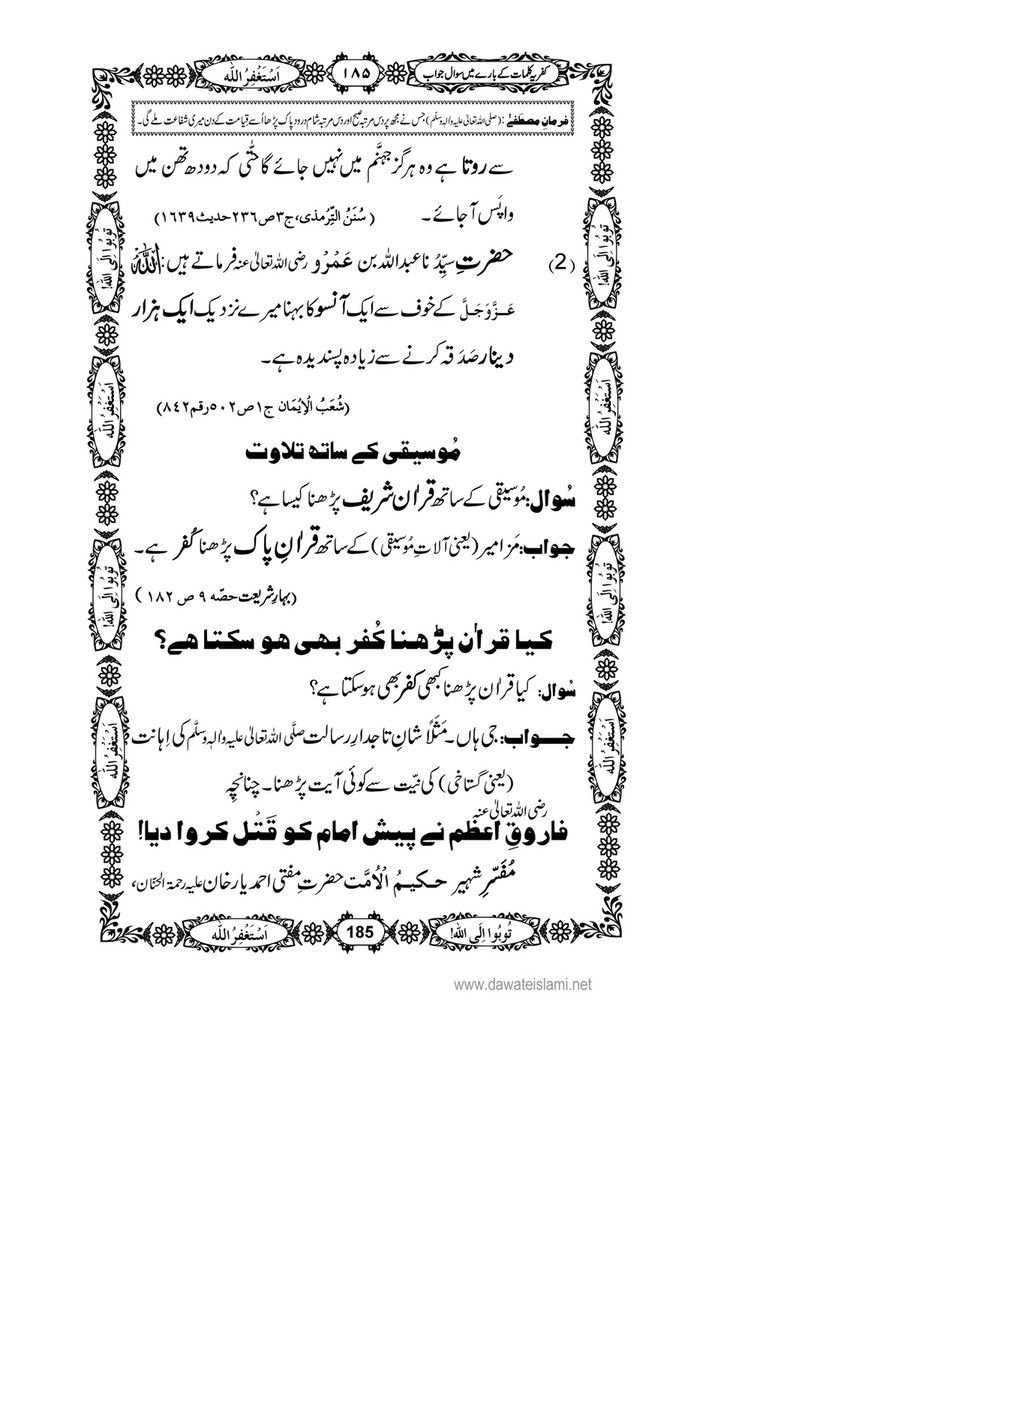 کفریہ کلمات کے بارے میں سوال جواب ۱۸۵ اَسْتَغْفِرُ اللّٰه
فرمانِ مصطفےٰ : (صلی اللہ تعالیٰ علیہ والہٖ وسلّم) جس نے مجھ پر دس مرتبہ صبح اور دس مرتبہ شام درود پاک پڑھا اُسے قیامت کے دن میری شفاعت ملے گی۔
سے روتا ہے وہ ہرگز جہنَّم میں نہیں جائے گا حَتّٰی کہ دودھ تھن میں
واپَس آجائے ۔ ( سُنَنُ التِّرمذی، ج۳ ص۲۳۶ حدیث۱۶۳۹)
(2) حضرتِ سیِّدُ نا عبداللہ بن عَمْرْو رضی اللہ تعالیٰ عنہ فرماتے ہیں: اللہ
عَزَّوَجَلَّ کے خوف سے ایک آنسو کا بہنا میرے نزدیک ایک ہزار
دینار صَدَقہ کرنے سے زیادہ پسندیدہ ہے۔
(شُعَبُ الْاِیْمَان ج۱ ص۵۰۲ رقم۸۴۲)
مُوسیقی کے ساتھ تلاوت
سُوال: مُوسیقی کے ساتھ قراٰن شریف پڑھنا کیسا ہے؟
جواب: مَزامیر (یعنی آلاتِ مُوسیقی) کے ساتھ قراٰنِ پاک پڑھنا کُفر ہے۔
(بہارِ شریعت حصّہ ۹ ص ۱۸۲)
کیا قراٰن پڑھنا کُفر بھی ہو سکتا ہے؟
سُوال: کیا قراٰن پڑھنا کبھی کفر بھی ہوسکتا ہے؟
جواب: جی ہاں۔ مَثَلاً شانِ تاجدارِ رسالت صلَّی اللہ تعالیٰ علیہ والہٖ وسلَّم کی اِہانت
(یعنی گستاخی) کی نیّت سے کوئی آیت پڑھنا۔ چنانچِہ
رضی اللہ تعالیٰ عنہ
فاروقِ اعظم نے پیش امام کو قَتْل کروا دیا!
مُفَسِّرِ شہیر حکیمُ الْاُمَّت حضرتِ مفتی احمد یار خان علیہ رحمۃ الحَنّان،
تُوبُوا اِلَی اللّٰه! 185 اَسْتَغْفِرُ اللّٰه
تُوبُوا اِلَی اللّٰه!
اَسْتَغْفِرُ اللّٰه
تُوبُوا اِلَی اللّٰه!
اَسْتَغْفِرُ اللّٰه
تُوبُوا اِلَی اللّٰه!
اَسْتَغْفِرُ اللّٰه
تُوبُوا اِلَی اللّٰه!
اَسْتَغْفِرُ اللّٰه
www.dawateislami.net